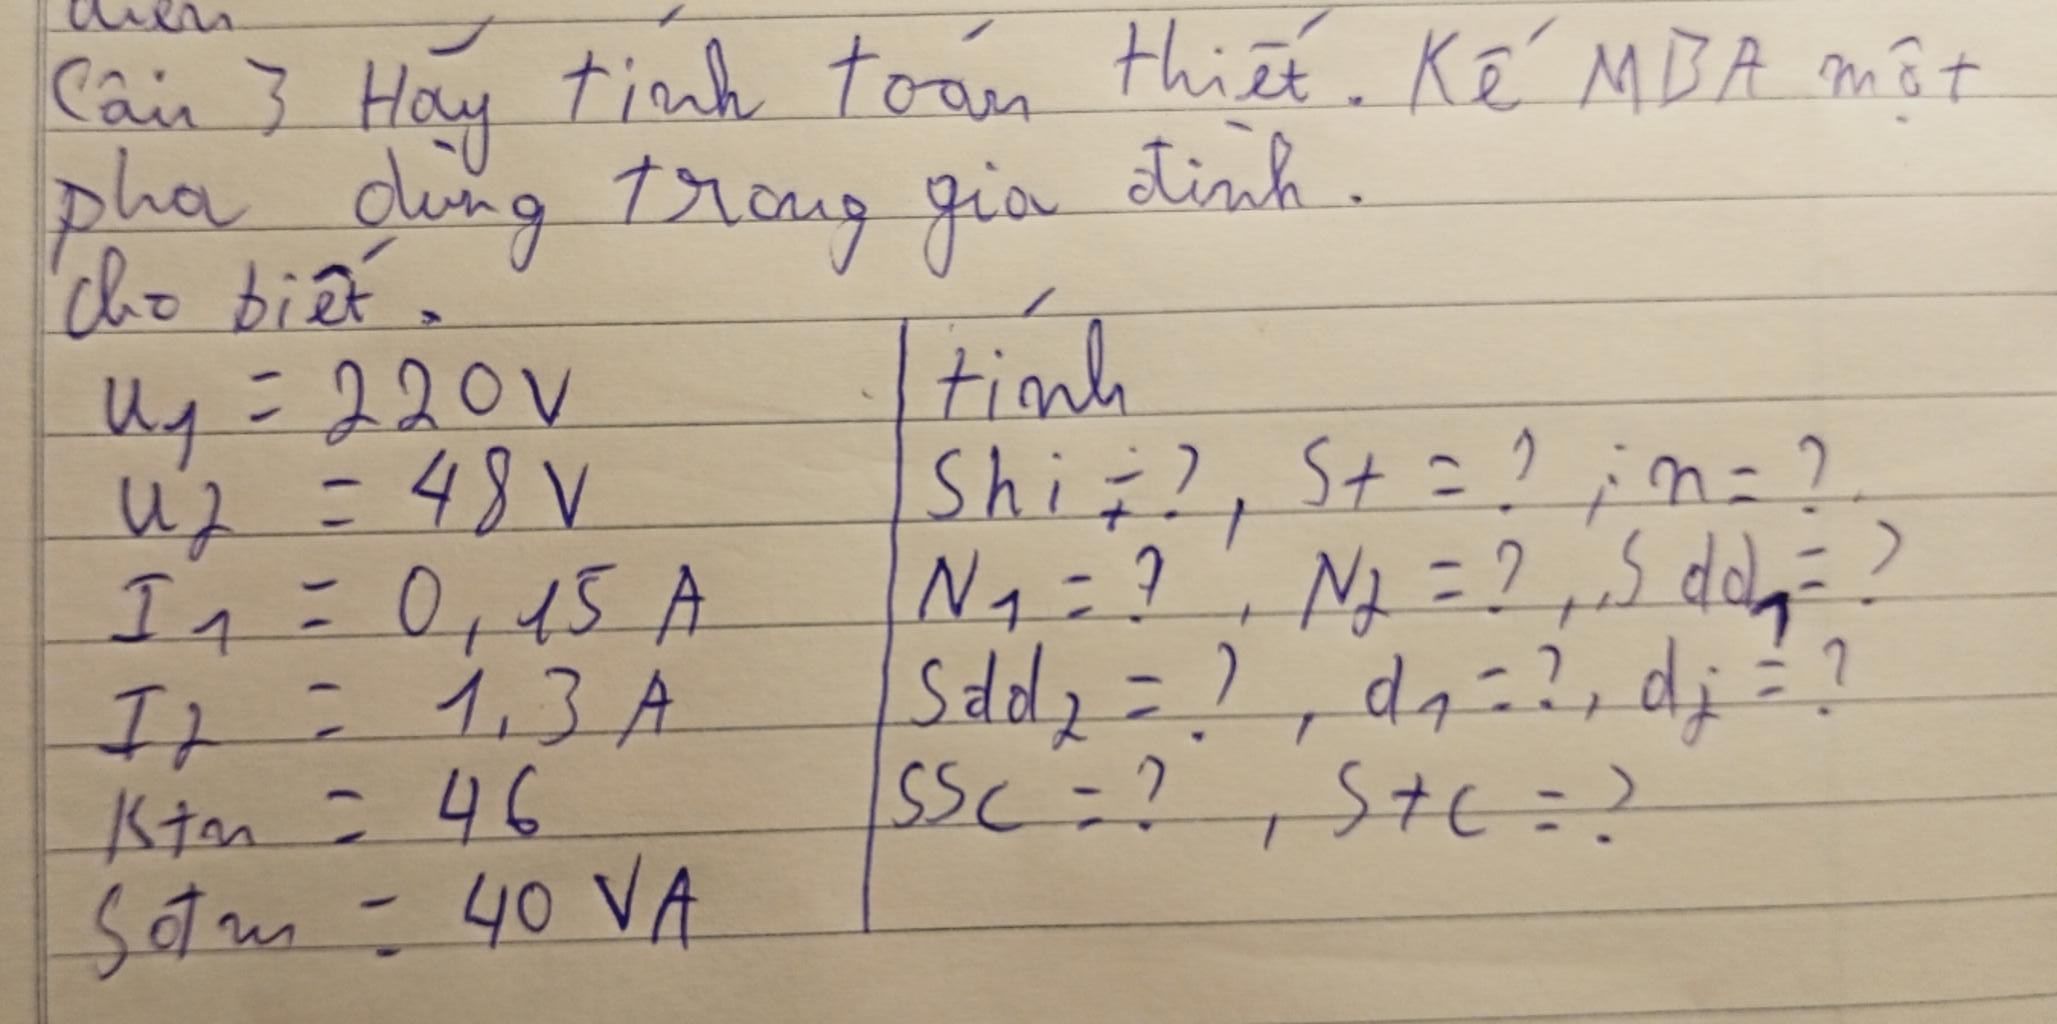 Câu 3 Hãy tính toán thiết. Kế MBA một
pha dùng trong gia đình.
Cho biết.
U1 = 220V
U2 = 48V
I1 = 0,15 A
I2 = 1,3 A
Ktn = 46
Sđm = 40 VA
tính
Shi = ?, St = ?; n = ?
N1 = ?, N2 = ?, Sdd1 = ?
Sdd2 = ?, d1 = ?, d2 = ?
SSc = ?, Stc = ?